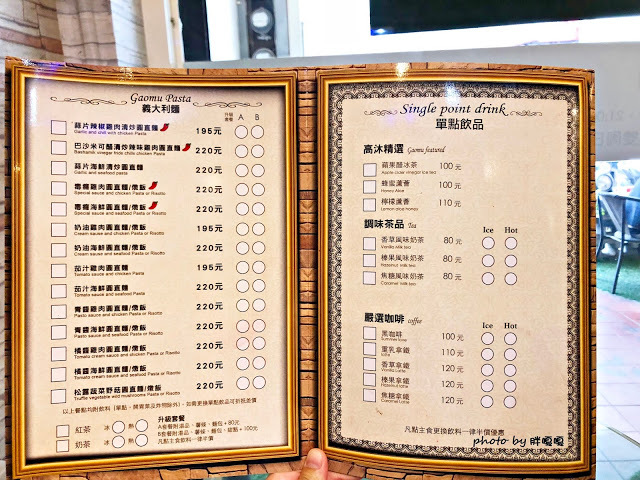 Gaomu Pasta
義大利麵
升級套餐 A B
蒜片辣椒雞肉清炒圓直麵 195元
Garlic and chili with chicken Pasta
巴沙米可醋清炒辣味雞肉圓直麵 220元
Balsamic vinegar fride chili chicken Pasta
蒜片海鮮清炒圓直麵 220元
Garlic and seafood pasta
毒癮雞肉圓直麵/燉飯 220元
Special sauce and chicken Pasta or Risotto
毒癮海鮮圓直麵/燉飯 220元
Special sauce and seafood Pasta or Risotto
奶油雞肉圓直麵/燉飯 195元
Cream sauce and chicken Pasta or Risotto
奶油海鮮圓直麵/燉飯 220元
Cream sauce and seafood Pasta or Risotto
茄汁雞肉圓直麵 195元
Tomato sauce and chicken Pasta
茄汁海鮮圓直麵 220元
Tomato sauce and seafood Pasta
青醬雞肉圓直麵/燉飯 220元
Pasto sauce and chicken Pasta or Risotto
青醬海鮮圓直麵/燉飯 220元
Pasto sauce and seafood Pasta or Risotto
橘醬雞肉圓直麵/燉飯 220元
Tomato cream sauce and chicken Pasta or Risotto
橘醬海鮮圓直麵/燉飯 220元
Tomato cream sauce and seafood Pasta or Risotto
松露蔬菜野菇圓直麵/燉飯 220元
Truffle vegetable wild mushrooms Pasta or Risotto
以上餐點均附飲料(單點、開胃菜及炸物除外),如需更換單點飲品可折抵差價
紅茶 冰 熱
奶茶 冰 熱
升級套餐
A套餐附湯品、薯條、麵包+80元,
B套餐附湯品、薯條、麵包、甜點+100元
凡點主食更換飲料一律半價
Single point drink
單點飲品
高沐精選 Gaomu featured
蘋果醋冰茶 100元
Apple cider vinegar Iced tea
蜂蜜蘆薈 100元
Honey Aloe
檸檬蘆薈 110元
Lemon aloe honey
調味茶品 Tea Ice Hot
香草風味奶茶 80元
Vanilla Milk tea
榛果風味奶茶 80元
Hazelnut Milk tea
焦糖風味奶茶 80元
Caramel Milk tea
嚴選咖啡 coffee Ice Hot
黑咖啡 100元
重乳拿鐵 110元
latte
香草拿鐵 120元
Vanilla Latte
榛果拿鐵 120元
Hazelnut Latte
焦糖拿鐵 120元
Caramel Latte
凡點主食更換飲料一律半價優惠
photo by 胖嘎嘎